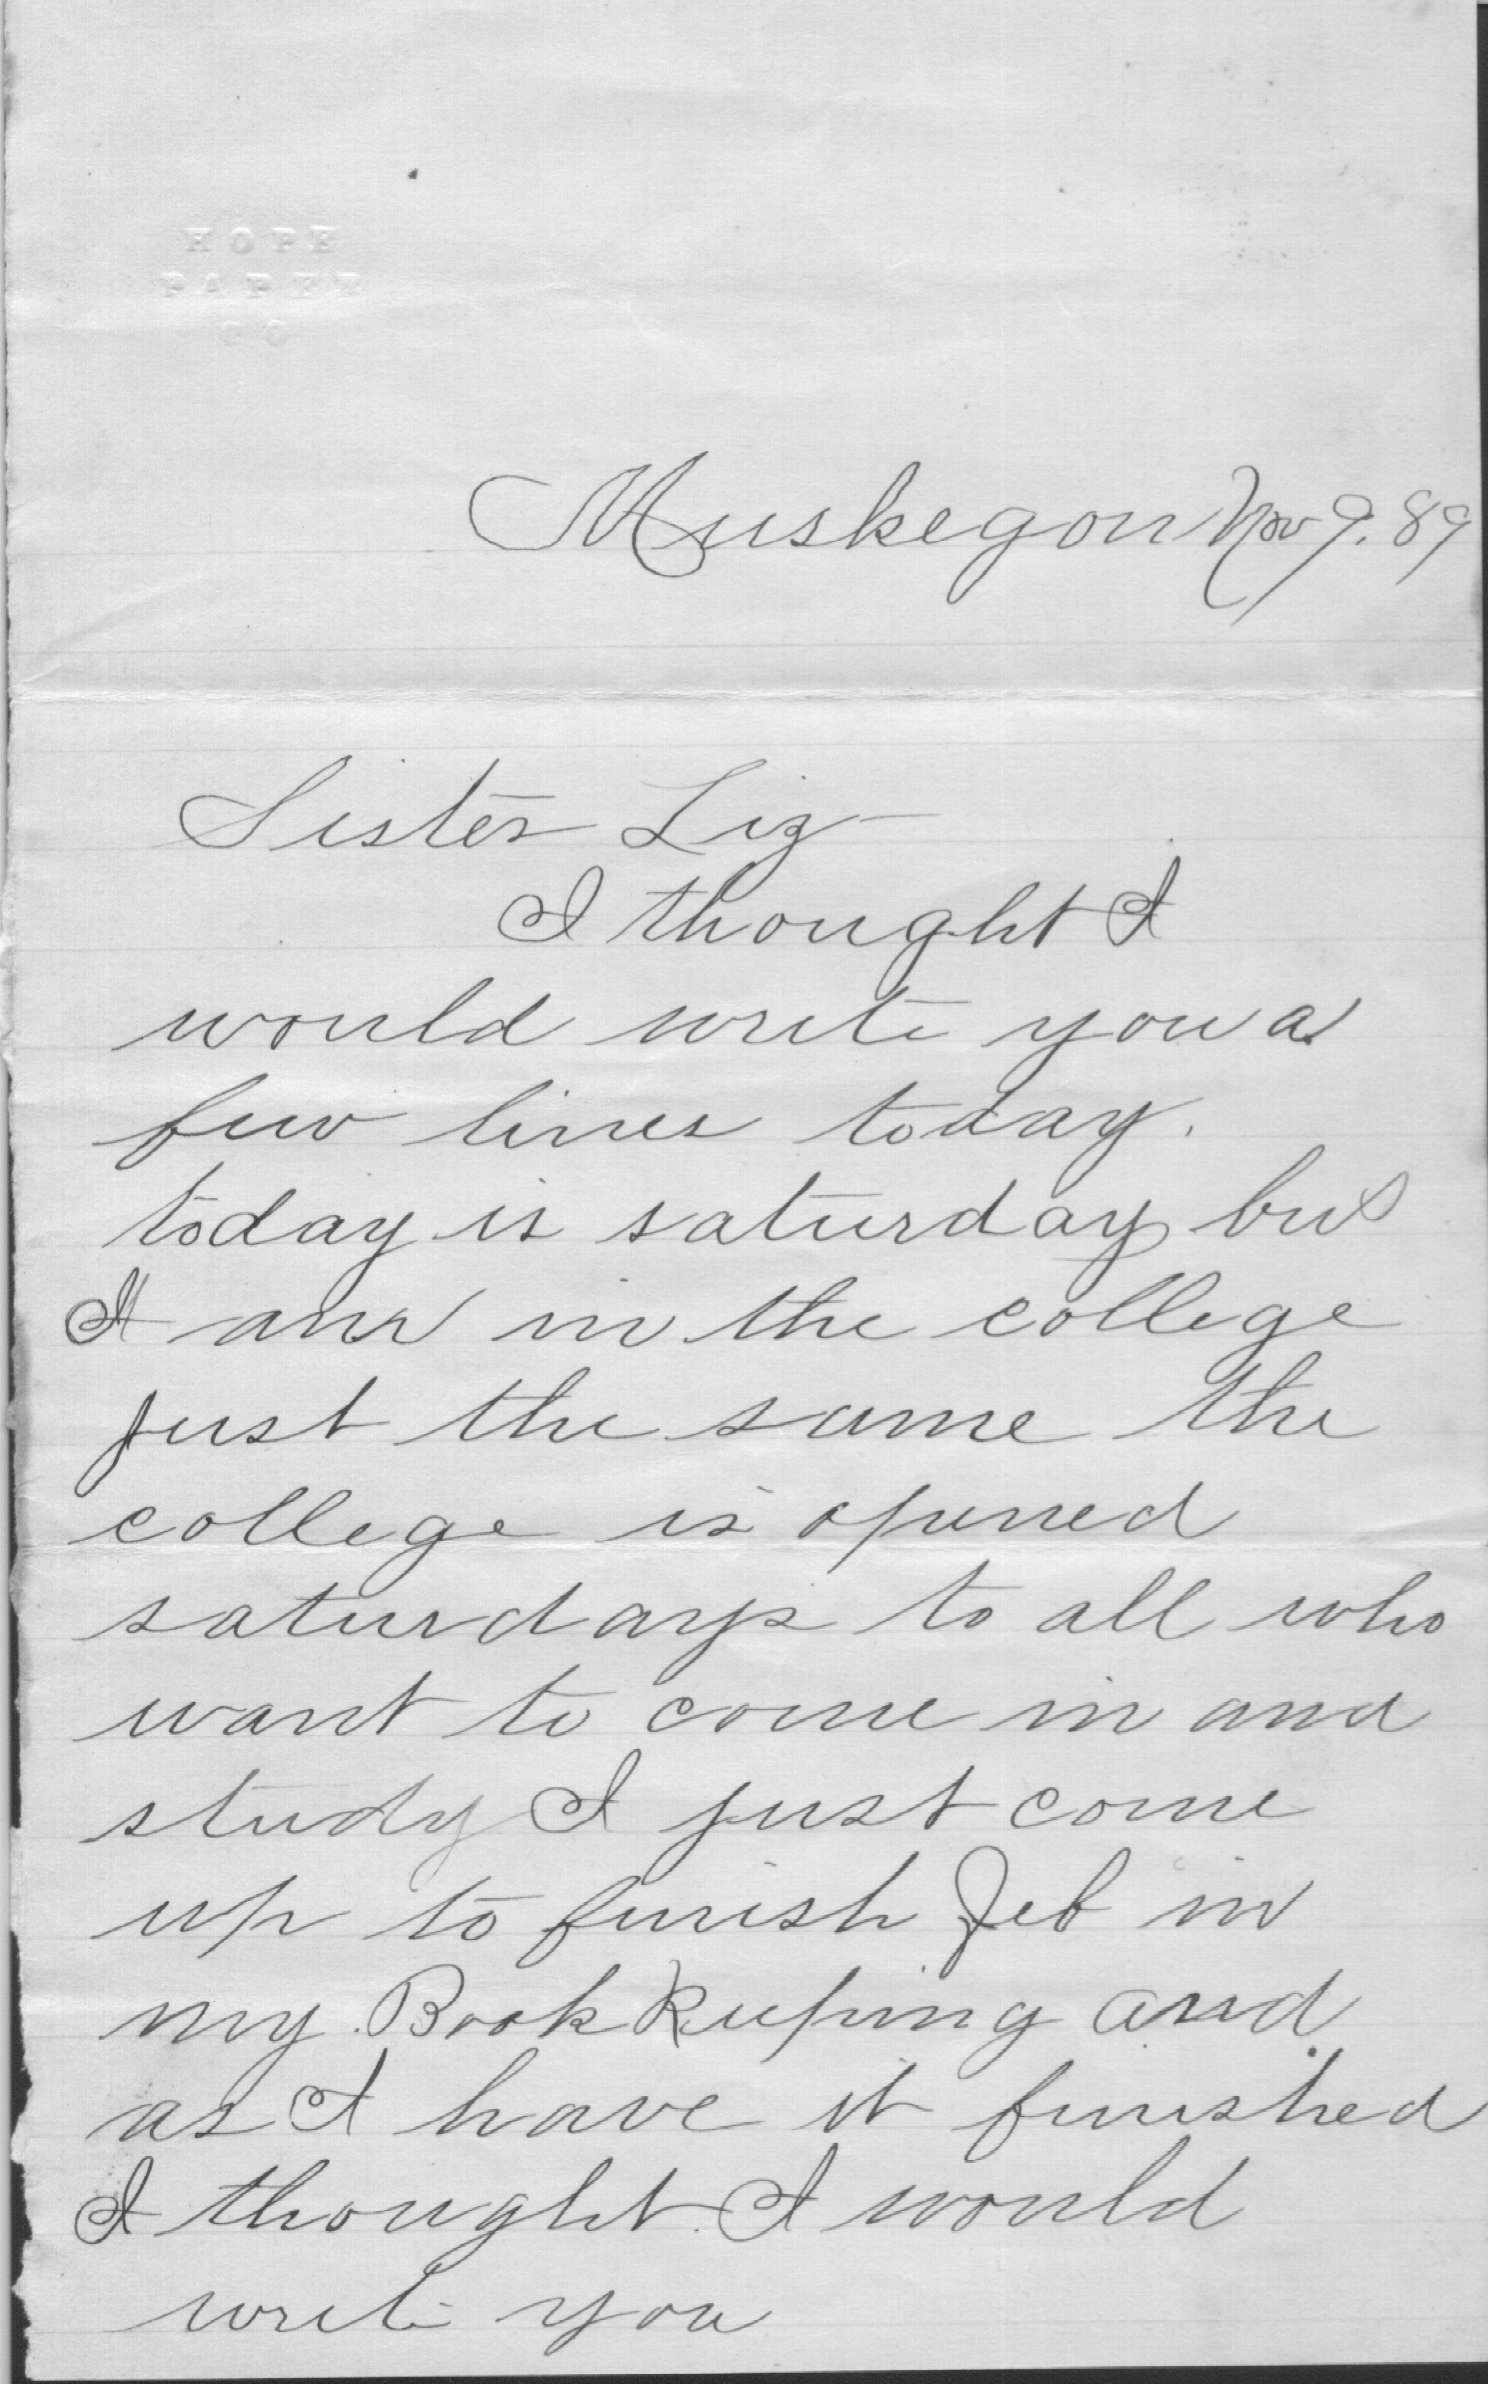 HOPE
PAPER
CO
Muskegon Nov 9. 89
Sister Liz
I thought I
would write you a
few lines today.
today is saturday but
I am in the college
just the same the
college is opened
saturdays to all who
want to come in and
study I just come
up to finish Feb in
my Book Keeping and
as I have it finished
I thought I would
write you